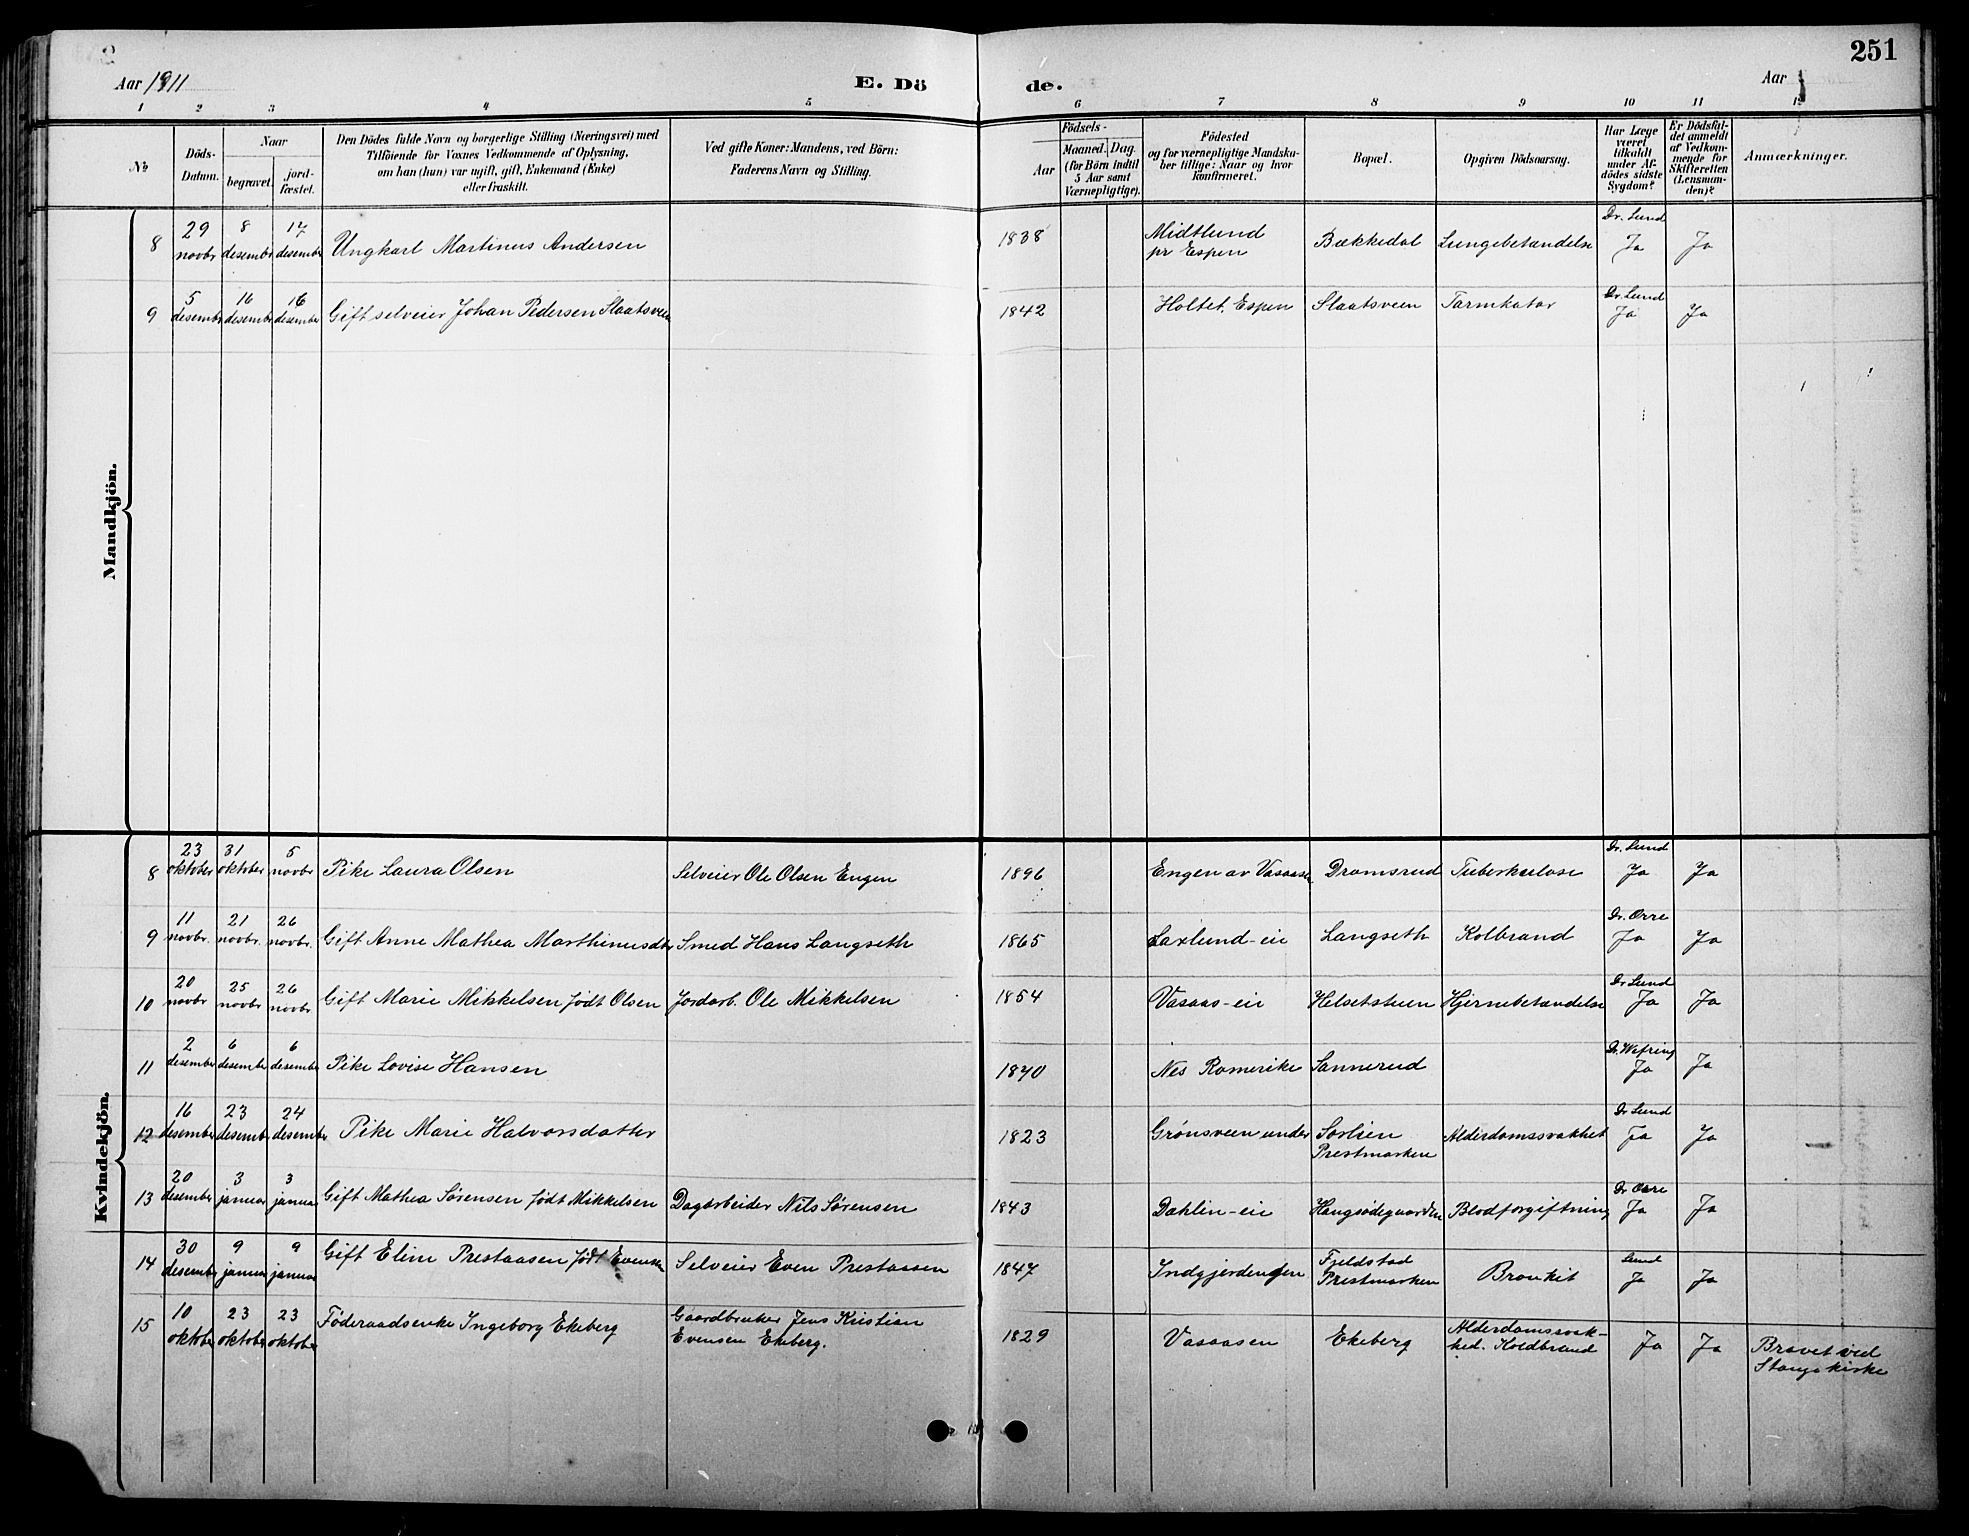 251
Aar 1911
E. Dö
de.
Aar
1 2 3 4 5 6 7 8 9 10 11 12
No
Döds-
Datum.
Naar
begravet.
jord-
fæstet.
Den Dödes fulde Navn og borgerlige Stilling (Næringsvei) med
Tilföiende for Voxnes Vedkommende af Oplysning,
om han (hun) var ugift, gift, Enkemand (Enke)
eller fraskilt.
Ved gifte Koner: Mandens, ved Börn:
Faderens Navn og Stilling.
Födsels-
Aar
Maaned. Dag.
(for Börn indtil
5 Aar samt
Værnepligtige).
Födested
og for værnepligtige Mandska-
ber tillige: Naar og hvor
konfirmeret.
Bopæl.
Opgiven Dödsaarsag.
Har Læge
været
tilkaldt
under Af-
dödes sidste
Sygdom?
Er Dödsfal-
det anmeldt
af Vedkom-
mende for
Skifteretten
(Lensman-
den)?
Anmærkninger.
Mandkjön.
8 29 novbr 8 desember 17 desember Ungkarl Martinus Andersen 1838 Midtlund pr Espen Bækkedal Lungebetændelse Dr. Lund Ja Ja
9 5 desember 16 desember 16 desember Gift selveier Johan Pedersen Slaatsveen 1842 Holtet, Espen Slaatsveen Tarmkatar Dr. Lund Ja Ja
Kvindekjön.
8 23 oktober 31 oktober 5 novbr Pike Laura Olsen Selveier Ole Olsen Engen 1896 Engen av Vasaasen Dramsrud Tuberkulose Dr. Lund Ja Ja
9 11 novbr. 21 novbr. 26 novbr. Gift Anne Mathea Marthinusdtr Smed Hans Langseth 1865 Laxlund-eie Langseth Kolbrand Dr. Orre Ja Ja
10 20 novbr 25 novbr 26 novbr Gift Marie Mikkelsen født Olsen Jordarb. Ole Mikkelsen 1854 Vasaas-eie Helsetsteen Hjernebetændelse Dr Lund Ja Ja
11 2 desember 6 desember 6 desember Pike Lovise Hansen 1870 Nes Romerike Sannerud Dr. Wefring Ja Ja
12 16 desember 23 desember 24 desember Pike Marie Halvorsdatter 1823 Grønsveen under Sorlien Prestmarken Alderdomssvakhet Dr Lund Ja Ja
13 20 desember 3 januar 3 januar Gift Mathea Sørensen født Mikkelsen Dagarbeider Nils Sørensen 1843 Dahlin-eie Haugsødegaarden Blodforgiftning Dr Orre Ja Ja
14 30 desember 9 januar 9 januar Gift Eline Prestaasen født Evensen Selveier Even Prestaasen 1847 Indgjerdingen Fjeldstad Prestmarken Bronkit Lund Ja Ja
15 10 oktober 23 oktober 23 oktober Føderaadsenke Ingeborg Ekeberg Gaardbruker Jens Kristian Evensen Ekeberg. 1829 Vasaasen Ekeberg Alderdomssvak-
hed. Koldbrand Ja Ja Bravet ved
Stange kirke